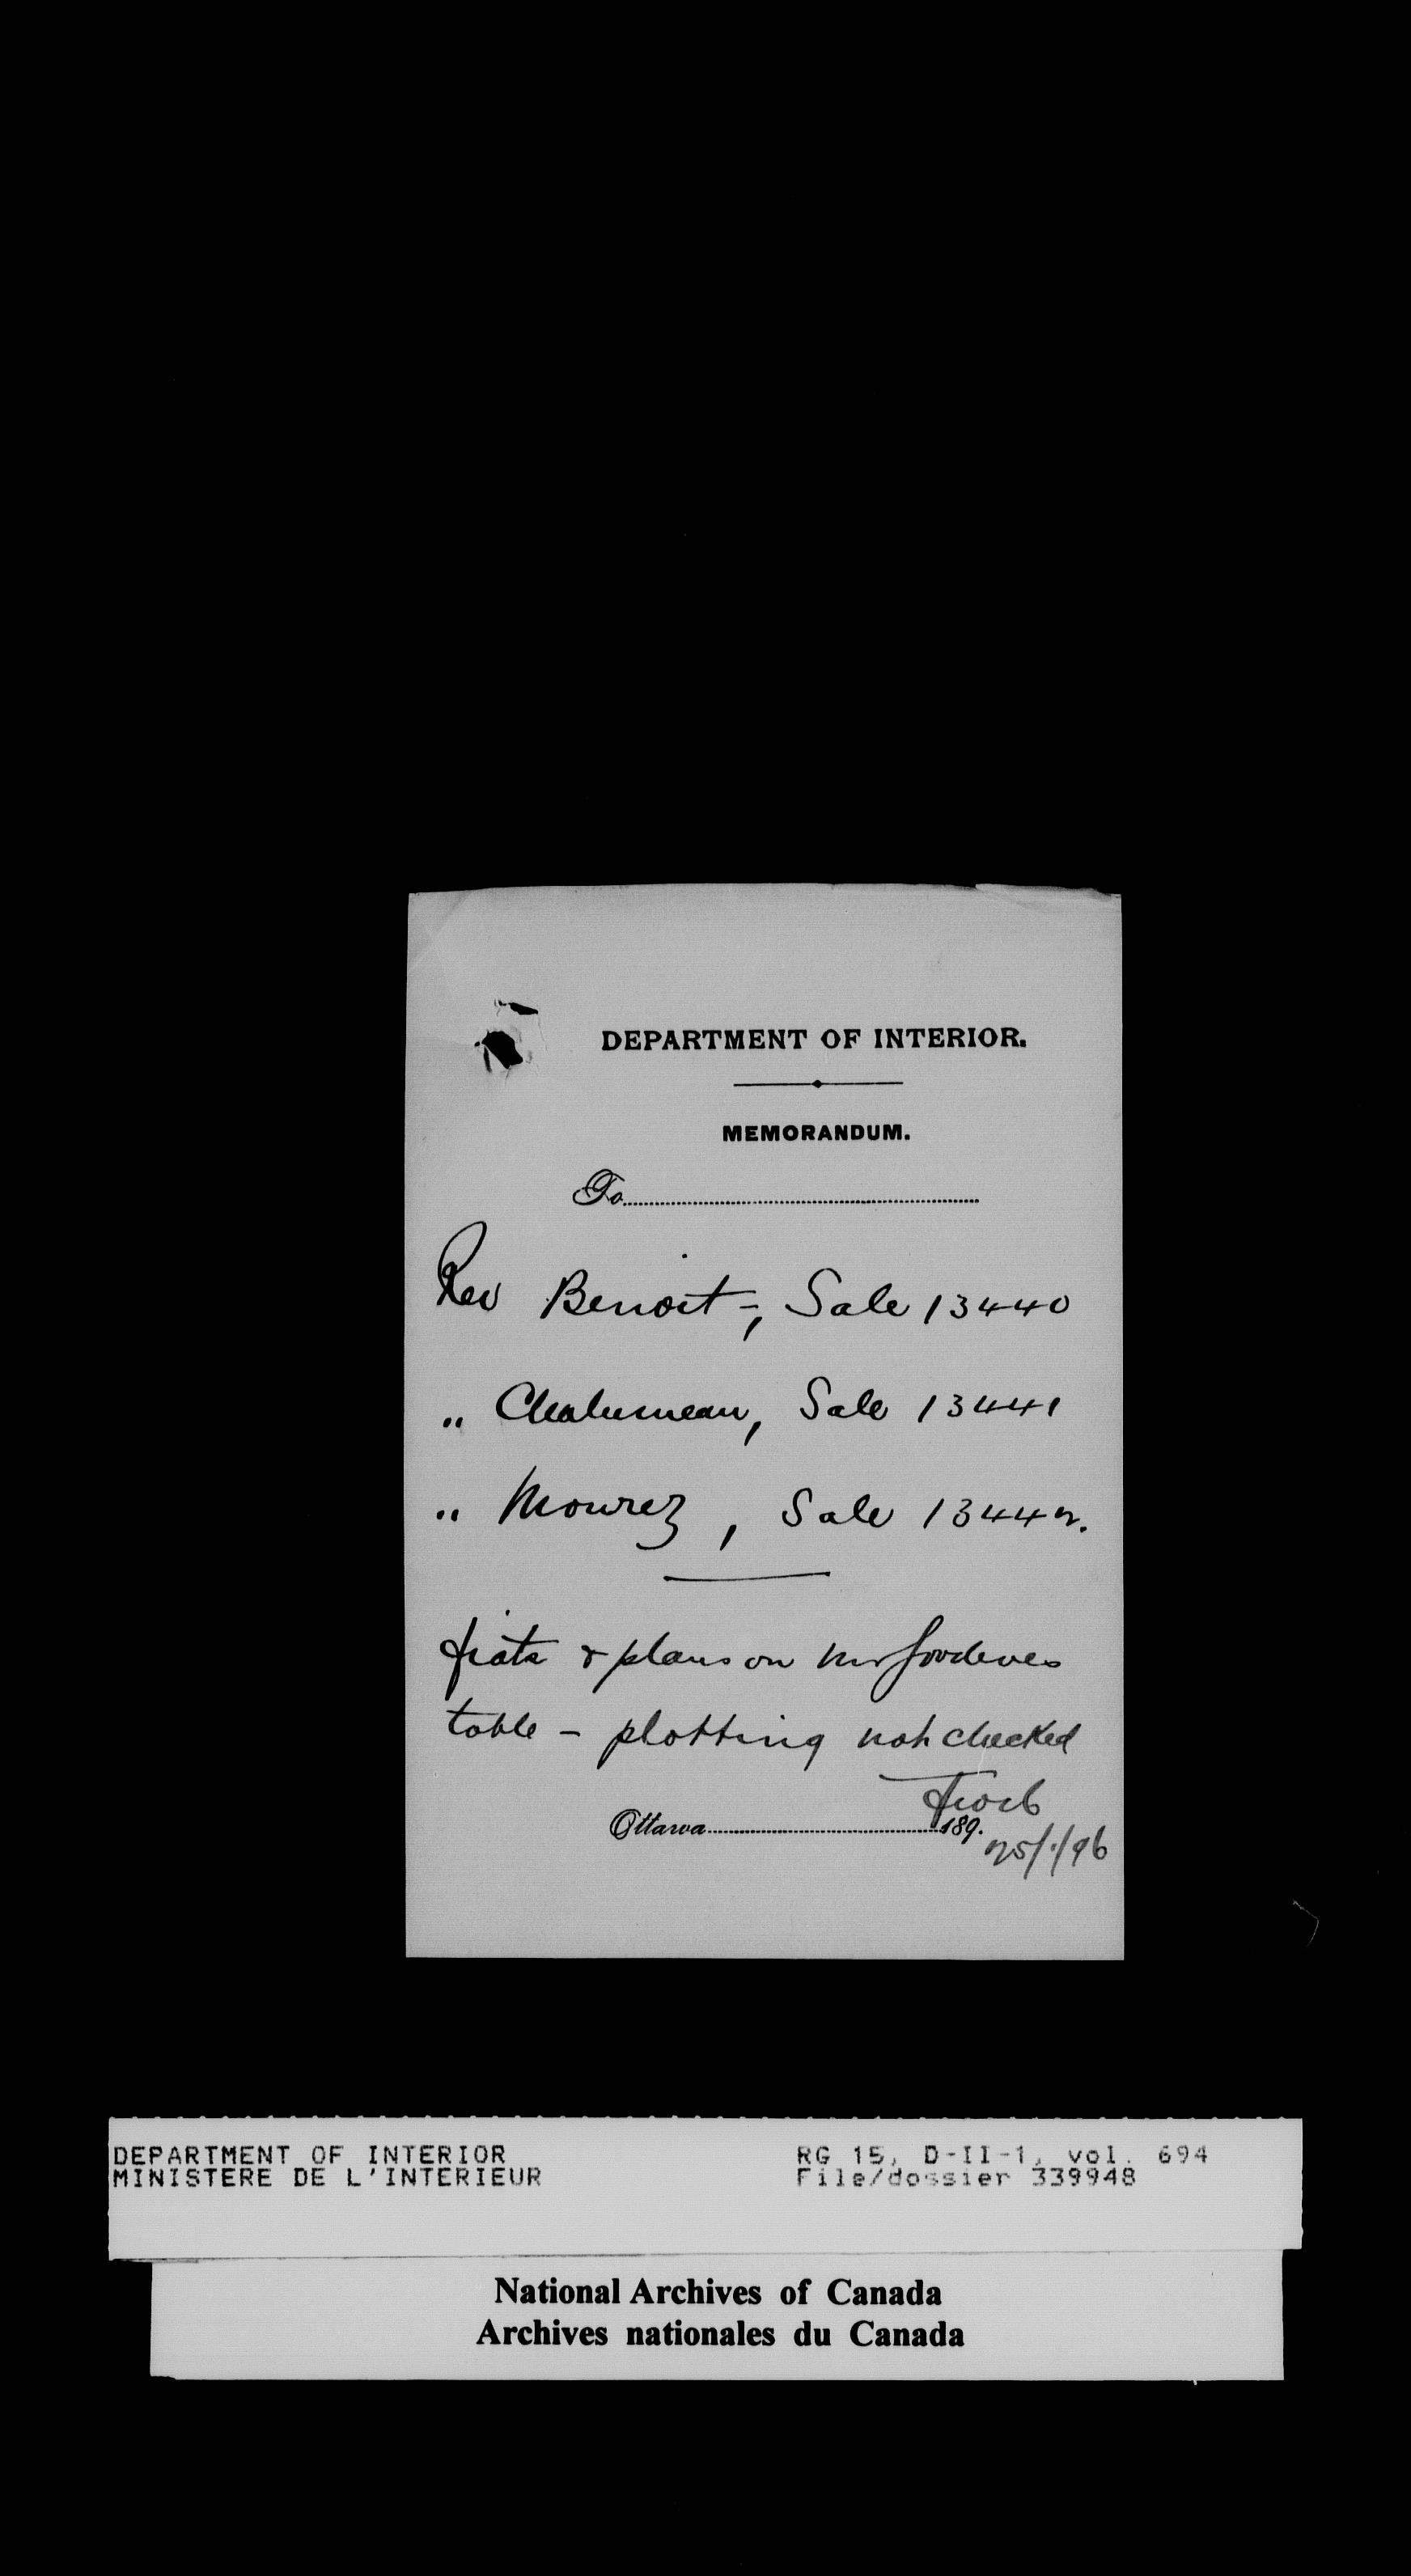 DEPARTMENT OF INTERIOR.
MEMORANDUM.
To
Rev Benoit -, Sale 13440
" Chalumeau, Sale 13441
" Mourez, Sale 13442.
fiats & plans on Mr Goodeves
table - plotting not checked
Ottawa 189.
25/1/96
DEPARTMENT OF INTERIOR RG 15, D-II-1, vol. 694
MINISTERE DE L'INTERIEUR File/dossier 339948
National Archives of Canada
Archives nationales du Canada